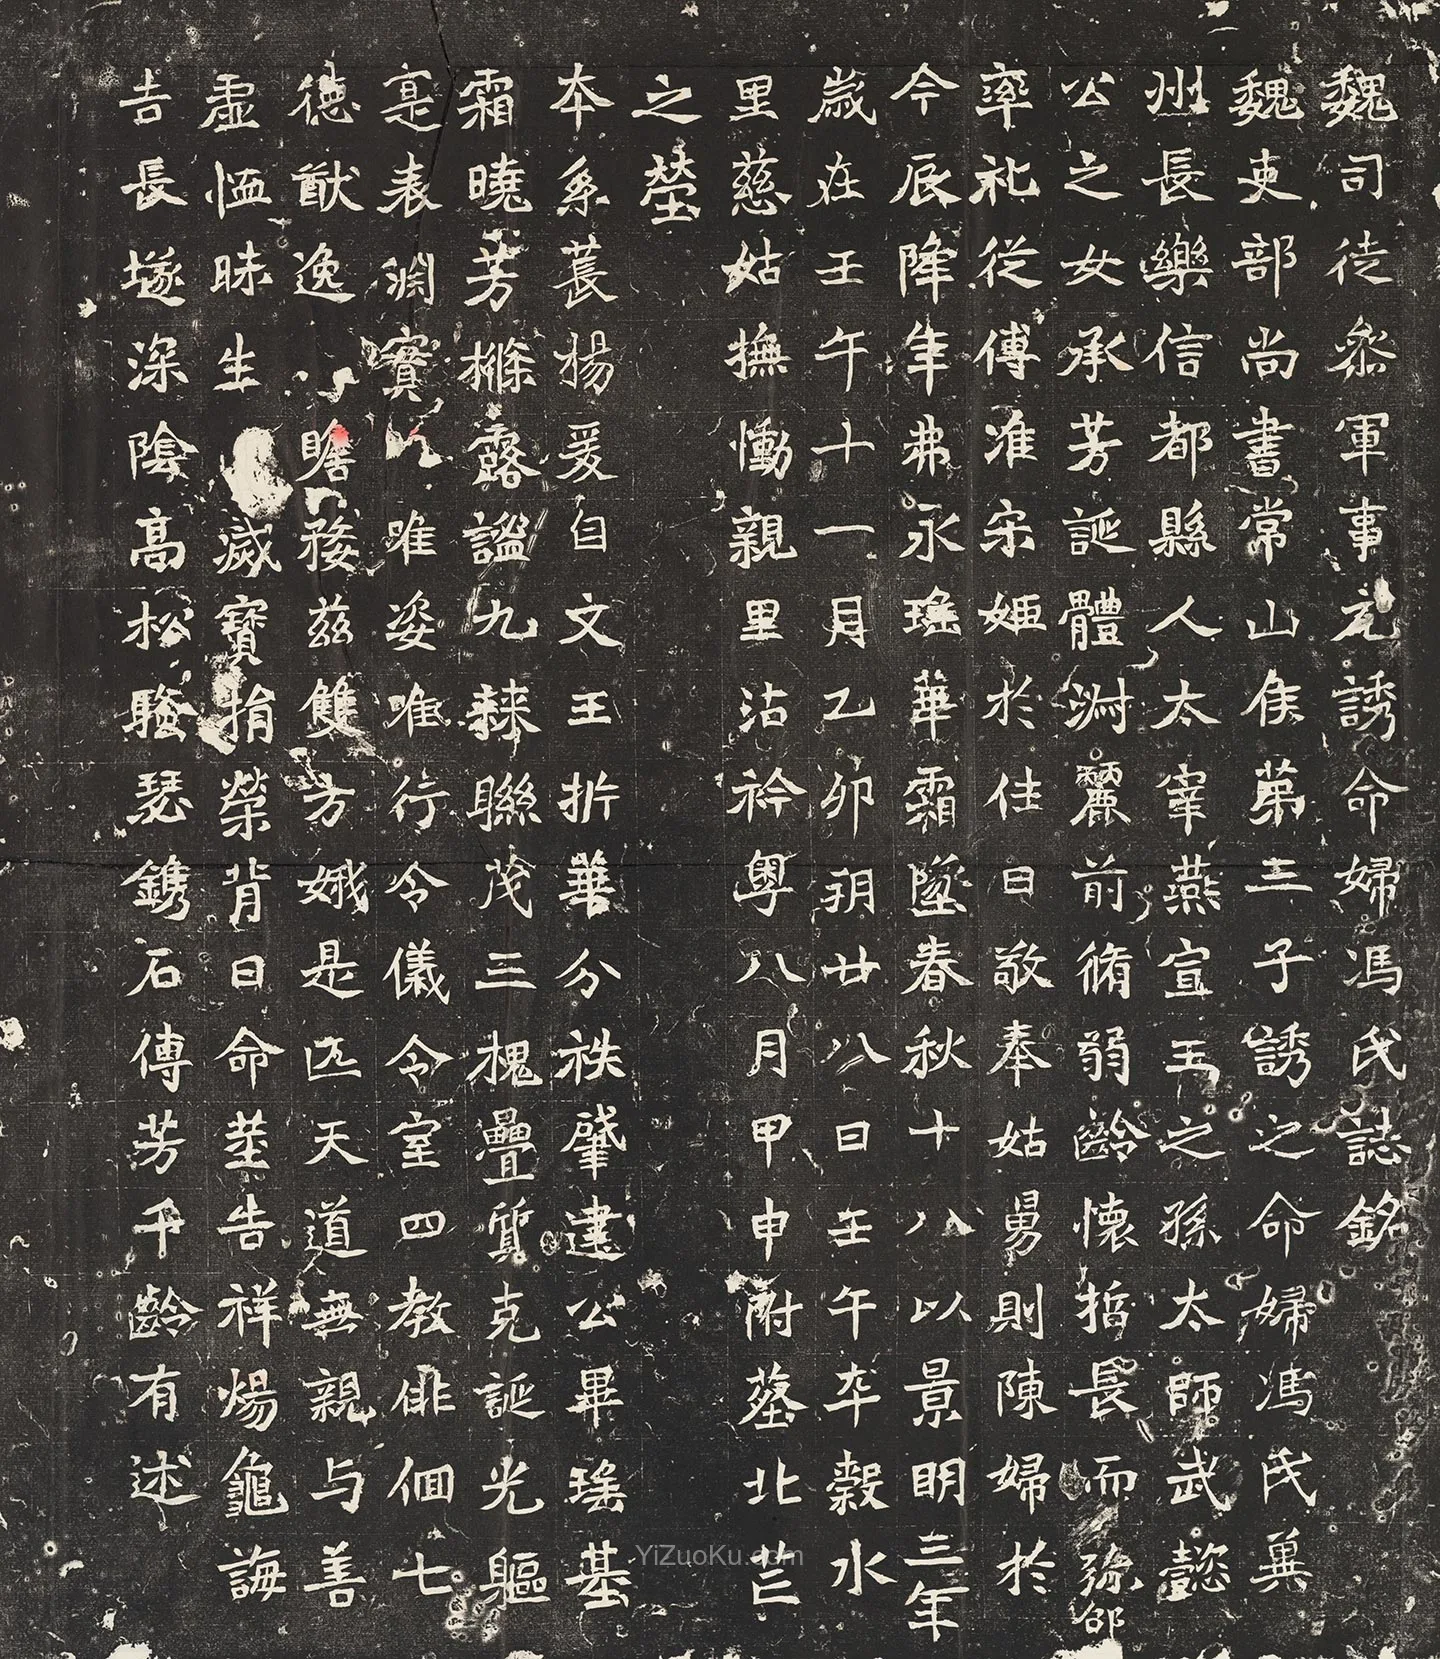 魏司徒叅軍事元誘命婦馮氏誌銘
魏吏部尚書常山侯第三子誘之命婦馮氏冀
州長樂信都縣人太宰燕宣王之孫太師武懿
公之女承芳誕體淵麗前脩弱齡懷哲長而弥邵
率礼從傅准宋姬於住日敬奉姑舅則陳婦於
今辰降年弗永瑤華霜墜春秋十八以景明三年
歲在壬午十一月乙卯朔廿八日壬午卒穀水
里慈姑撫慟親里沾衿粤八月甲申祔塟北芒
之塋
本系萇楊爰自文王折華分袟肇建公畢瑤基
霜曉芳樤露謐九棘聯茂三槐疊質克誕光軀
寔表渊實 唯姿唯行令儀令室四教俳佪七
德猷逸 瞻務茲雙方娥是匹天道無親与善
虛恤昧生 滅寶捐榮背日命塟告祥煬龜誨
吉長埏深陰高松騷瑟鐫石傳芳千齡有述
YiZuoKu.com